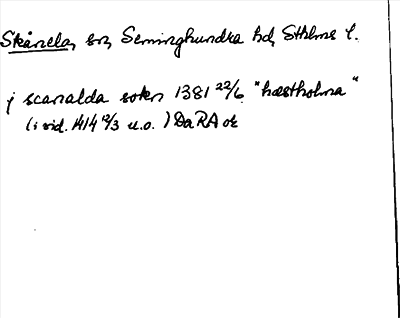 Skånela, sn, Seminghundra hd, Sthlms l.
j scanalda sokn 1381 22/6 "hæstholma"
(i vid. 1414 12/3 u.o.) DaRA ok